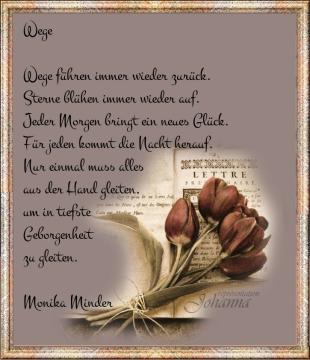 Wege
Wege führen immer wieder zurück.
Sterne blühen immer wieder auf.
Jeder Morgen bringt ein neues Glück.
Für jeden kommt die Nacht herauf.
Nur einmal muss alles
aus der Hand gleiten.
um in tiefste
Geborgenheit
zu gleiten.
Monika Minder
LETTRE
représentation
Johanna